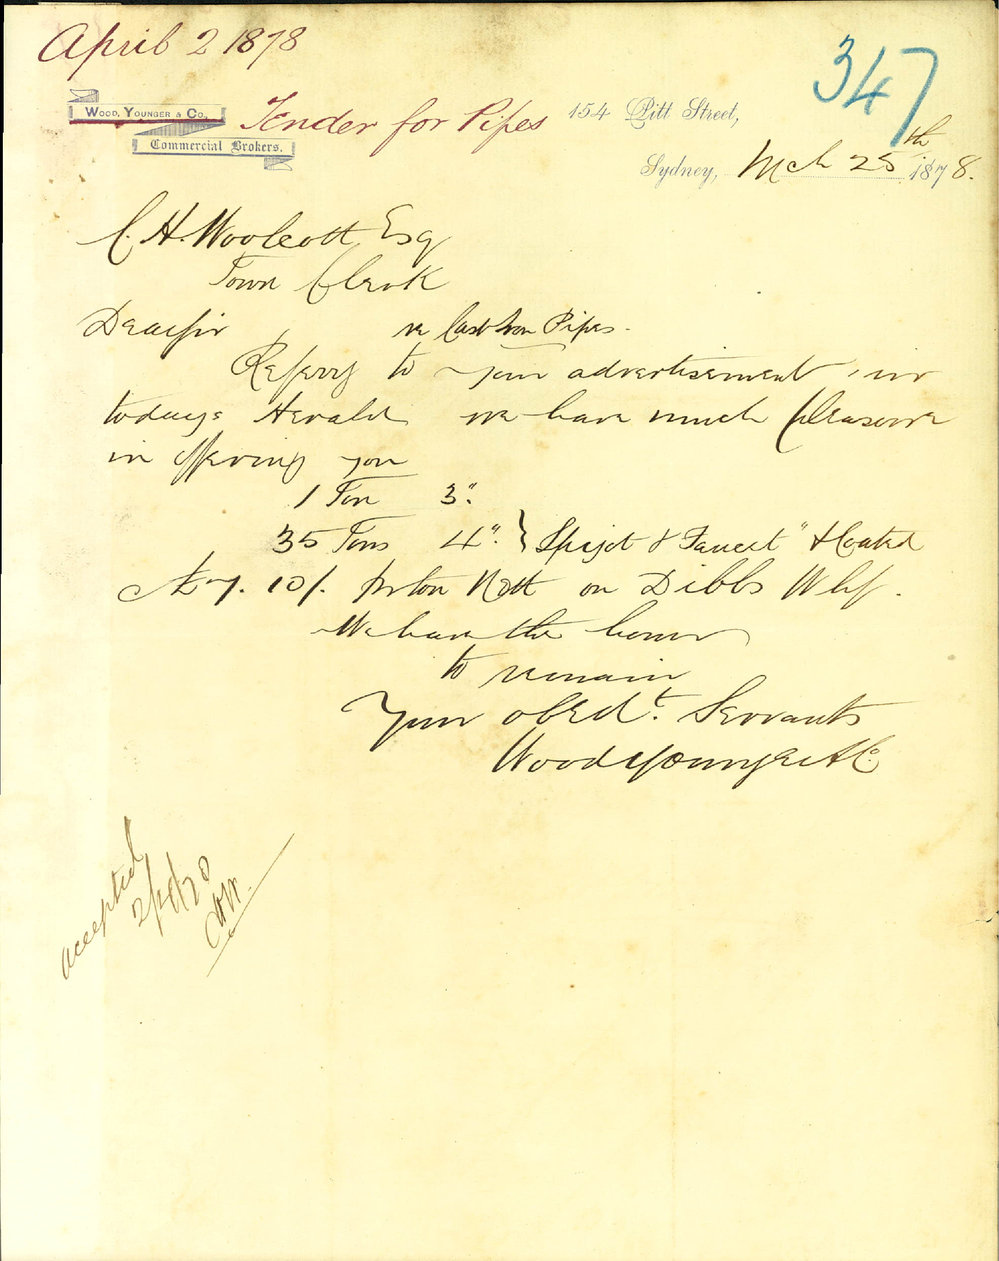 April 2 1878
347
WOOD, YOUNGER & Co.
Commercial Brokers.
Tender for Pipes
154 Pitt Street,
Sydney, Mch 25th 1878.
C. H. Woolcott Esq
Town Clerk
Dear Sir re Cast Iron Pipes.
Referrg to your advertisement in
todays Herald we have much pleasure
in offering you
1 Ton 3".
35 Tons 4". } Spigot & Faucet" & Coated
At 7. 10/. pr ton Nett on Dibbs Whf.
We have the honor
to remain
Your obedt. Servants
Wood Younger & Co
accepted
2/4/78
CHW.